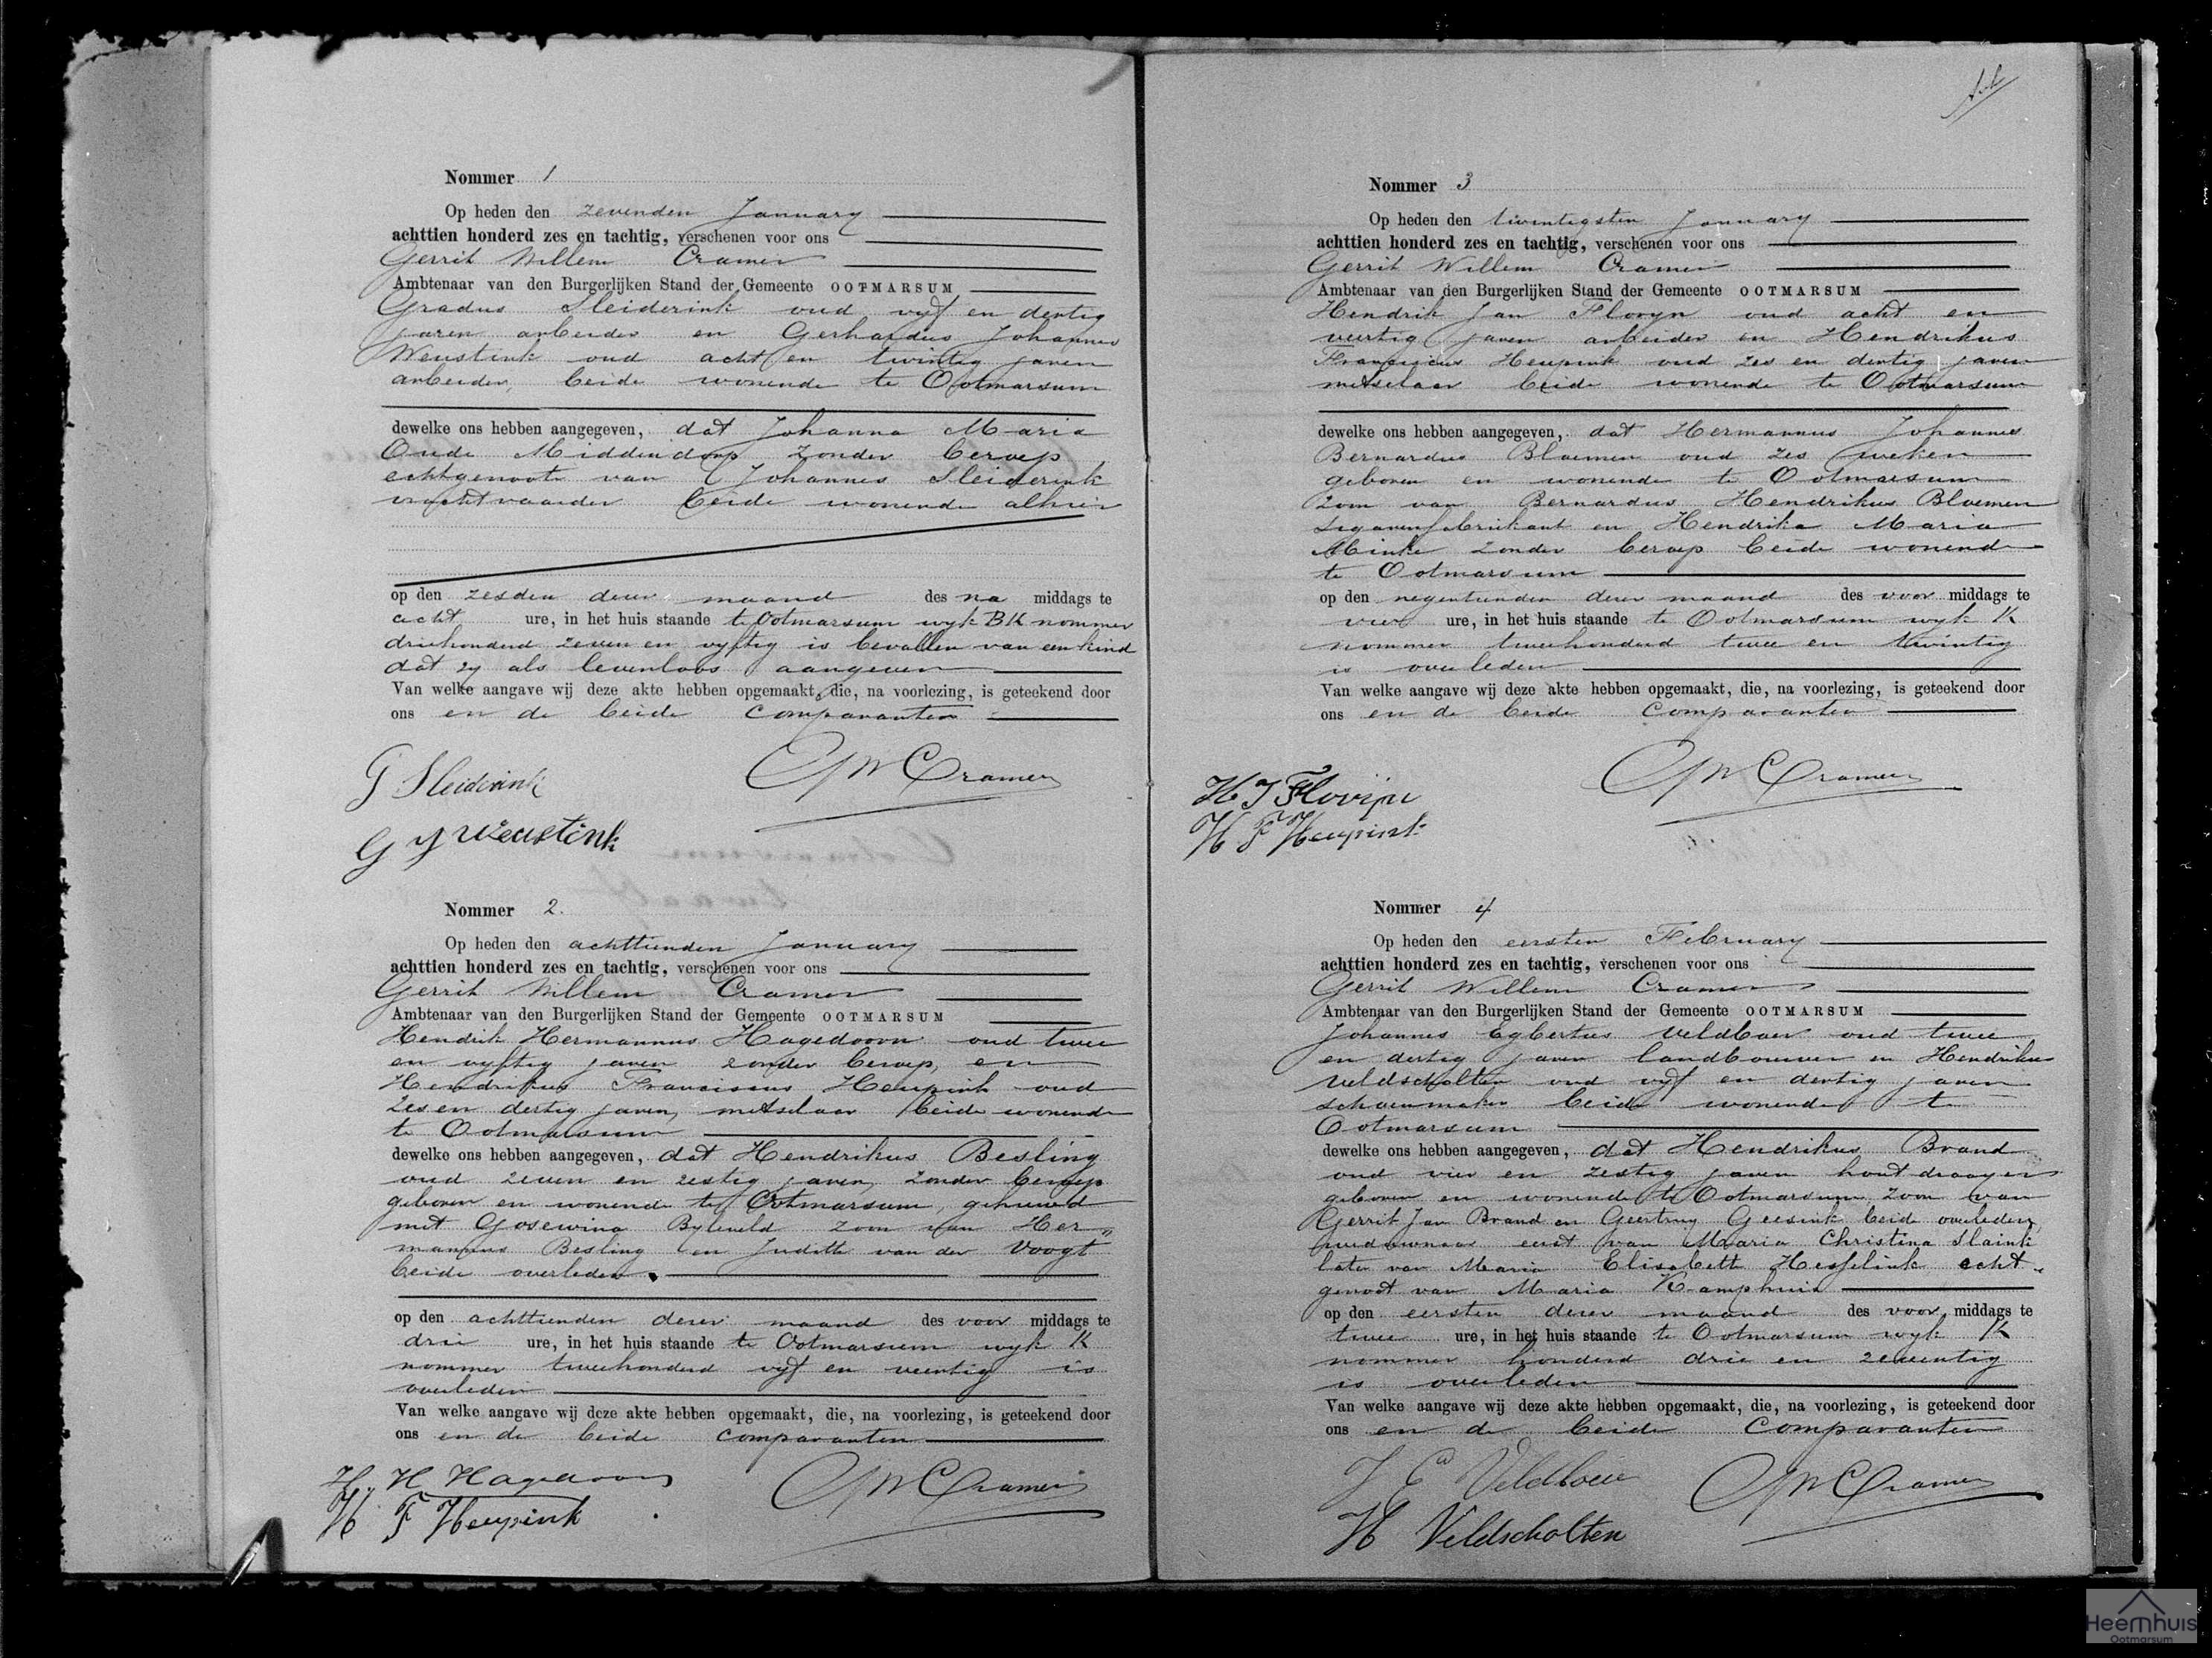 Nommer 1
Op heden den zevenden January
achttien honderd zes en tachtig, verschenen voor ons
Gerrit Willem Cramer
Ambtenaar van den Burgerlijken Stand der Gemeente OOTMARSUM
Gradus Sleiderink oud vijf en dertig
jaren arbeider en Gerhardus Johannes
Weustink oud acht en twintig jaren
arbeider, beide wonende te Ootmarsum
dewelke ons hebben aangegeven, dat Johanna Maria
Oude Middendorp zonder beroep
echtgenoote van Johannes Sleiderink
vrachtvaarder beide wonende alhier
op den zesden dezer maand des na middags te
acht ure, in het huis staande te Ootmarsum wyk BK nommer
driehonderd zeven en vyftig is bevallen van een kind
dat zy als levenloos aangeven
Van welke aangave wij deze akte hebben opgemaakt, die, na voorlezing, is geteekend door
ons en de beide comparanten
G Sleiderink
GWCramer
G J Weustink
Nommer 2.
Op heden den achttienden January
achttien honderd zes en tachtig, verschenen voor ons
Gerrit Willem Cramer
Ambtenaar van den Burgerlijken Stand der Gemeente OOTMARSUM
Hendrik Hermannus Hagedoorn oud twee
en vyftig jaren zonder beroep, en
Hendrikus Franciscus Heupink oud
zes en dertig jaren, metselaar beide wonende
te Ootmarsum
dewelke ons hebben aangegeven, dat Hendrikus Besling
oud zeven en zestig jaren, zonder beroep
geboren en wonende te Ootmarsum, gehuwd
met Gosewina Byleveld zoon van Her"
mannus Besling en Judith van der Voogt
beide overleden.
op den achttienden dezer maand des voor middags te
drie ure, in het huis staande te Ootmarsum wyk K
nommer tweehonderd vyf en veertig is
overleden
Van welke aangave wij deze akte hebben opgemaakt, die, na voorlezing, is geteekend door
ons en de beide comparanten
H. H Hagedoorn
GWCramer
H F Heupink
Nommer 3
Op heden den twintigsten January
achttien honderd zes en tachtig, verschenen voor ons
Gerrit Willem Cramer
Ambtenaar van den Burgerlijken Stand der Gemeente OOTMARSUM
Hendrik Jan Floryn oud acht en
veertig jaren arbeider en Hendrikus
Franciscus Heupink oud zes en dertig jaren
metselaar beide wonende te Ootmarsum
dewelke ons hebben aangegeven, dat Hermannus Johannes
Bernardus Bloemen oud zes weken
geboren en wonende te Ootmarsum
zoon van Bernardus Hendrikus Bloemen
sigarenfabriekant en Hendrika Maria
Minke zonder beroep beide wonende
te Ootmarsum
op den negentienden dezer maand des voor middags te
vier ure, in het huis staande te Ootmarsum wyk K
nommer tweehonderd twee en twintig
is overleden
Van welke aangave wij deze akte hebben opgemaakt, die, na voorlezing, is geteekend door
ons en de beide comparanten
GWCramer
H J Florijn
H F Heupink
Nommer 4
Op heden den eersten February
achttien honderd zes en tachtig, verschenen voor ons
Gerrit Willem Cramer
Ambtenaar van den Burgerlijken Stand der Gemeente OOTMARSUM
Johannes Egbertus Veldboer oud twee
en dertig jaren landbouwer en Hendrikus
Veldscholten oud vyf en dertig jaren
schoenmaker beide wonende te
Ootmarsum
dewelke ons hebben aangegeven, dat Hendrikus Brand
oud vier en zestig jaren houtdraayer
geboren en wonende te Ootmarsum, zoon van
Gerrit Jan Brand en Geertruy Geesink beide overleden
weduwnaar eerst van Maria Christina Slaink
later van Maria Elisabeth Hesselink echt"
genoot van Maria Kamphuis
op den eersten dezer maand des voor middags te
twee ure, in het huis staande te Ootmarsum wyk K
nommer honderd drie en zeventig
is overleden
Van welke aangave wij deze akte hebben opgemaakt, die, na voorlezing, is geteekend door
ons en de beide comparanten
J E Veldboer
GWCramer
H Veldscholten
Heemhuis
Ootmarsum